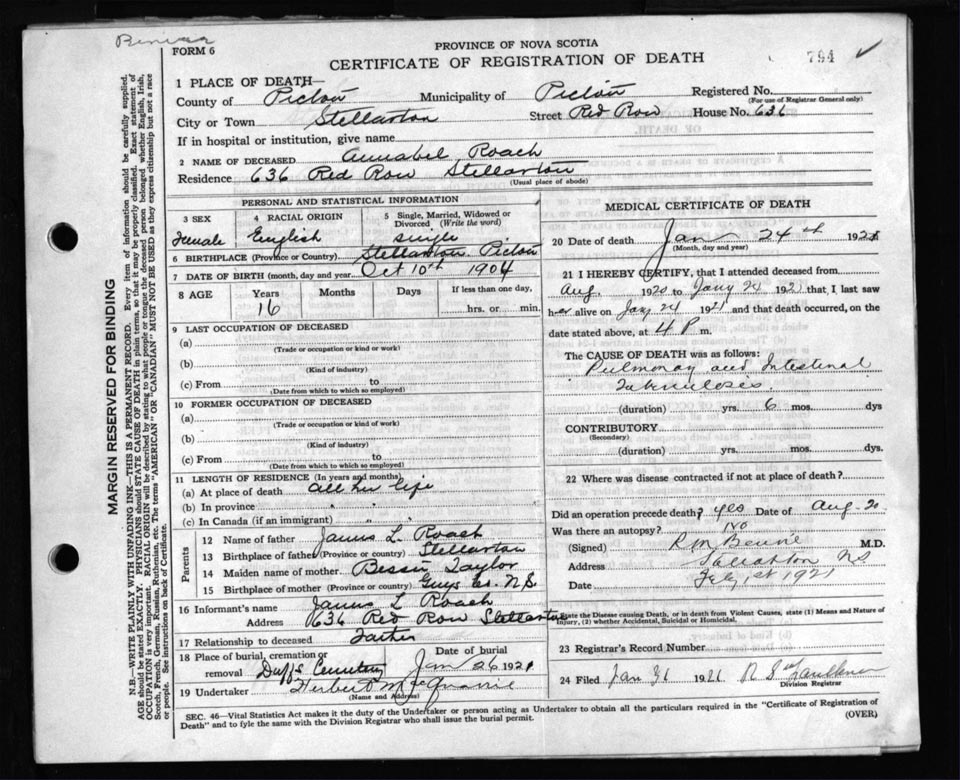 FORM 6
PROVINCE OF NOVA SCOTIA
CERTIFICATE OF REGISTRATION OF DEATH
794
1 PLACE OF DEATH—
County of Pictou Municipality of Pictou Registered No.
(For use of Registrar General only)
City or Town Stellarton Street Red Row House No. 636
If in hospital or institution, give name
2 NAME OF DECEASED Annabel Roach
Residence 636 Red Row Stellarton
(Usual place of abode)
PERSONAL AND STATISTICAL INFORMATION
3 SEX 4 RACIAL ORIGIN 5 Single, Married, Widowed or Divorced (Write the word)
Female English single
6 BIRTHPLACE (Province or Country) Stellarton Pictou
7 DATE OF BIRTH (month, day and year) Oct 10th 1904
8 AGE Years Months Days If less than one day,
16 hrs. or min.
9 LAST OCCUPATION OF DECEASED
(a)
(Trade or occupation or kind or work)
(b)
(Kind of industry)
(c) From to
(Date from which to which so employed)
10 FORMER OCCUPATION OF DECEASED
(a)
(Trade or occupation or kind of work)
(b)
(Kind of industry)
(c) From to
(Date from which to which so employed)
11 LENGTH OF RESIDENCE (In years and months)
(a) At place of death all her life
(b) In province " "
(c) In Canada (if an immigrant) " "
Parents
12 Name of father James L. Roach
13 Birthplace of father (Province or country) Stellarton
14 Maiden name of mother Bessie Taylor
15 Birthplace of mother (Province or country) Guys Co. N.S.
16 Informant's name James L Roach
Address 636 Red Row Stellarton
17 Relationship to deceased Father
18 Place of burial, cremation or removal Duffs Cemetery Date of burial Jan 26 1921
19 Undertaker Herbert McQuarrie
(Name and Address)
MEDICAL CERTIFICATE OF DEATH
20 Date of death Jan 24th 1921
(Month, day and year)
21 I HEREBY CERTIFY, that I attended deceased from
Aug 1920 to Jany 24 1921 that I last saw
her alive on Jay 24 1921 and that death occurred, on the
date stated above, at 4 P m.
The CAUSE OF DEATH was as follows:
Pulmonay and Intestinal
Tuberculoses
(duration) yrs. 6 mos. dys
CONTRIBUTORY
(Secondary)
(duration) yrs. mos. dys.
22 Where was disease contracted if not at place of death?
Did an operation precede death? yes Date of Aug. 20
Was there an autopsy? No
(Signed) M.D.
Address NS
Date Feby 1st 1921
State the Disease causing Death, or in death from Violent Causes, state (1) Means and Nature of
Injury, (2) whether Accidental, Suicidal or Homicidal.
23 Registrar's Record Number
24 Filed Jan 31 1921
Division Registrar
SEC. 46—Vital Statistics Act makes it duty of the Undertaker or person acting as Undertaker to obtain all the particulars required in the "Certificate of Registration of
Death" and to fyle the same with the Division Registrar who shall issue the burial permit.
(OVER)
MARGIN RESERVED FOR BINDING
N.B.—WRITE PLAINLY WITH UNFADING INK—THIS IS A PERMANENT RECORD. Every item of information should be carefully supplied.
AGE should be stated EXACTLY. PHYSICIANS should STATE CAUSE OF DEATH in plain terms, so that it may be properly classified. Exact statement of
OCCUPATION is very important. RACIAL ORIGIN will be described by stating to what people or tongue the deceased person belonged whether English, Irish,
Scotch, French, German, Russian, Ruthenian, etc. The terms "AMERICAN" OR "CANADIAN" MUST NOT BE USED as they express citizenship but not a race
or people. See instructions on back of Certificate.